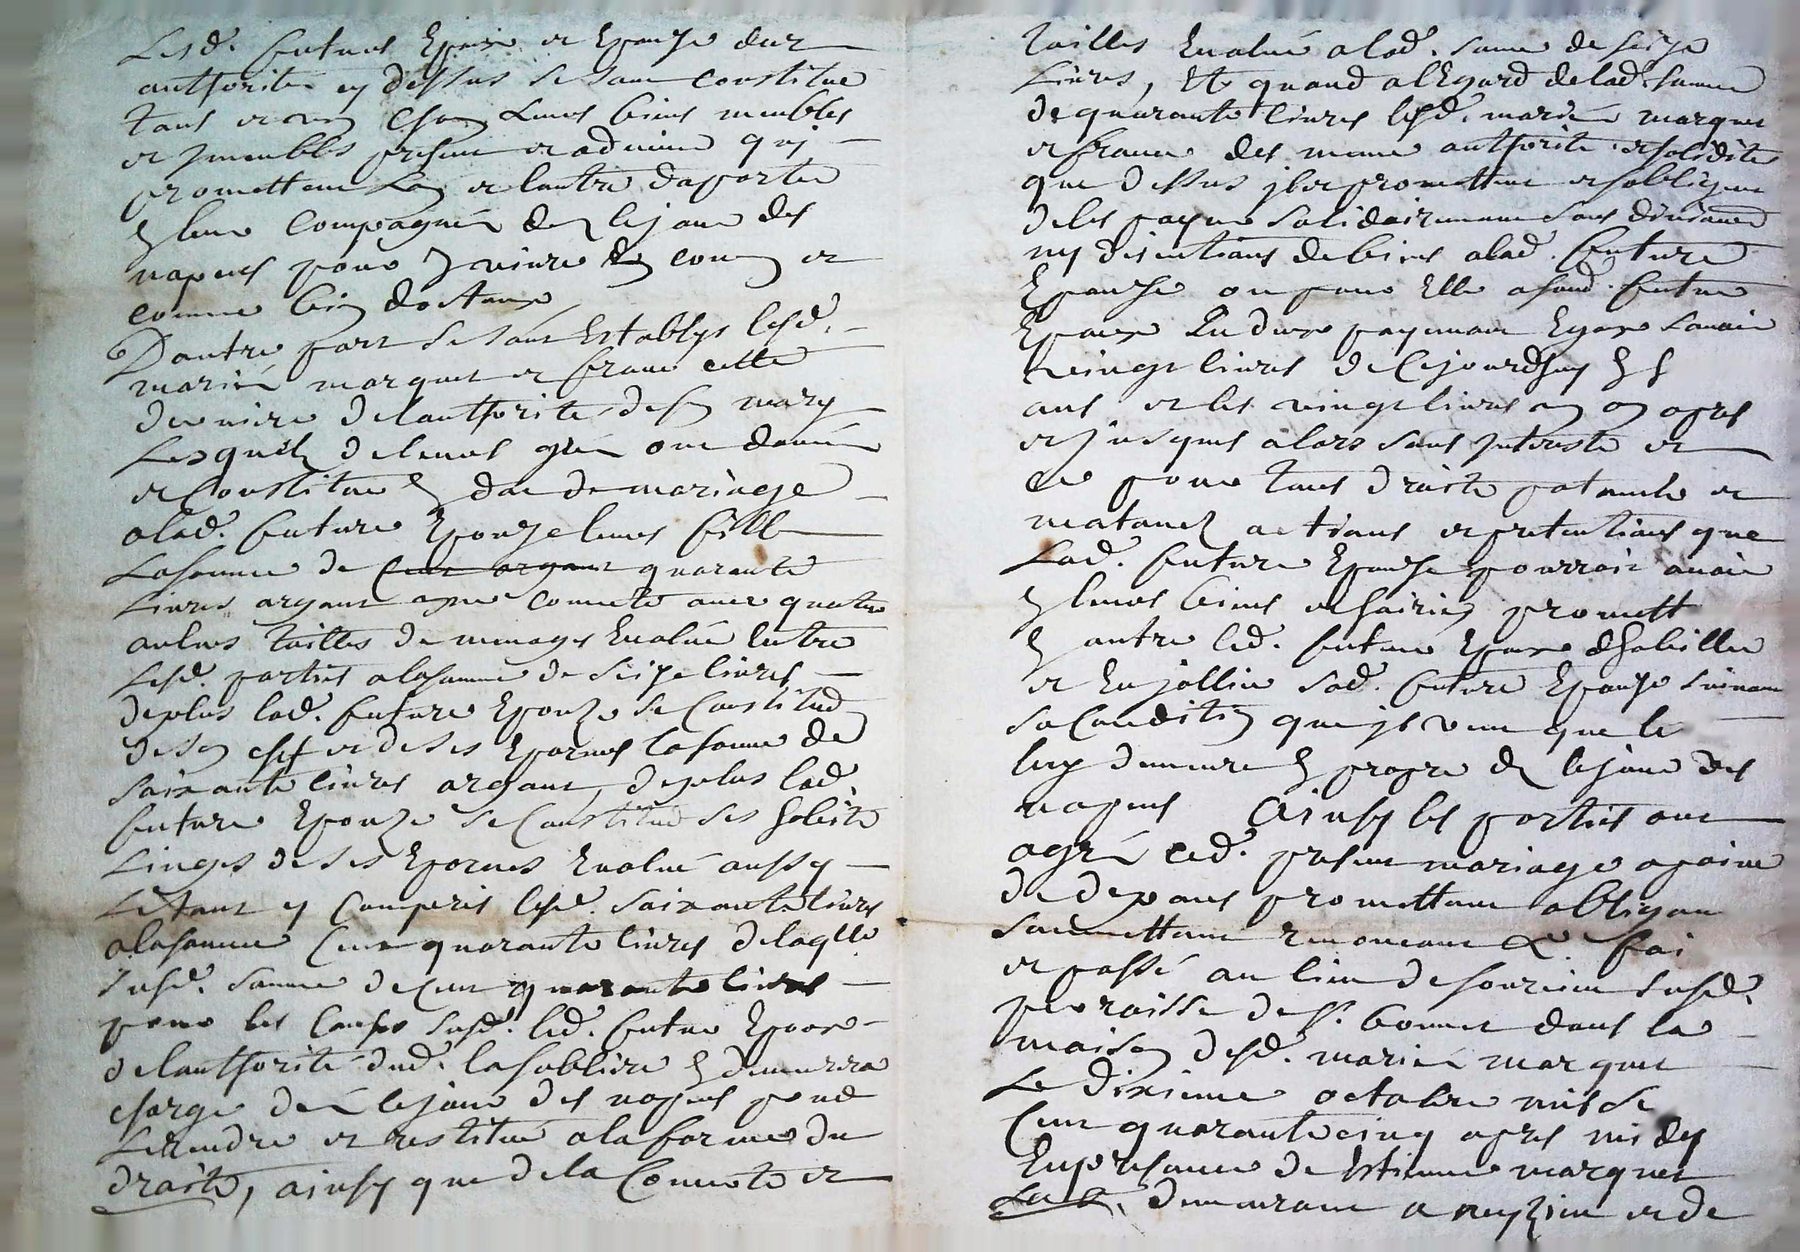 Lesd. futurs Epoux et Epouze dux
authorite cy dessus se sont constitue
tous et un chun leurs biens meubles
et jmeubles presens et advenir qui
promettent Lun et lautre daporter
En leur Compagnie des le jour des
nopces pour y vivre En commun et
comme bien dostaux
Dautre part se sont Establys lesd.
marié marquet et france cette
derniere de lauthorite de son mary
Lesquels de leurs gré ont donné
et Constitué En dot de mariage
a lad. future Epouze leurs fille
La somme de quarante
Livres argant avec quatre
aulnes toilles de menages Evalué Entre
Lesd. parties a la somme de seize livres
de plus lad. future Epouze se Constitue
de son chef et de ses Epornes la somme de
soixante livres argant, de plus lad.
future Epouze se Constitue ses habits
Linges de ses Epornes Evalué aussy
Le tout y Comperis lesd. soixante livres
a la somme Cent quarante livres de laqlle
susd. somme de Cent quarante livres
pour les Causes susd. led. futur Epoux
de lauthorité dud. lasabliere En demeurera
charge des le jour des nopces pour
Le rendre et restitué a la forme du
droits, ainsy que de la Couverte et
toilles Evalué a lad. somme de seize
Livres, Et quand a lEgard de lad. somme
de quarante livres lesd. marié marquet
et france des meme authorite et solidite
que dessus jls promettent et sobligent
de les payer solidairement sans division
ny discutions de biens a lad. future
Epouze ou pour Elle a sond. futur
Epoux En deux payement Egaux savoir
vingt livres de Cejourdhuy En
ans et les vingt livres un an apres
et jusques alors sans jnterests et
ce pour tous droits paternels et
maternel actions et pretentions que
Lad. future Epouze pourroit avoir
En leurs biens et hoiries promett
En outre led. futur Epoux dhabiller
et Enjollier sad. future Epouze suivant
sa Condition que jl veut que le
luy demeure En propre des le jour des
nopces Ainsy les parties ont
agré ced. present mariage a paine
de depans promettant obligant
soumettant renoncant &. fai
et passé au lieu de susd.
perroisse de St. bonnet dans la
maison desd. marié marquet
Le dixieme octobre mil se
Cent quarante cinq apres midy
En presance de Estienne marquet
demeurant a et de